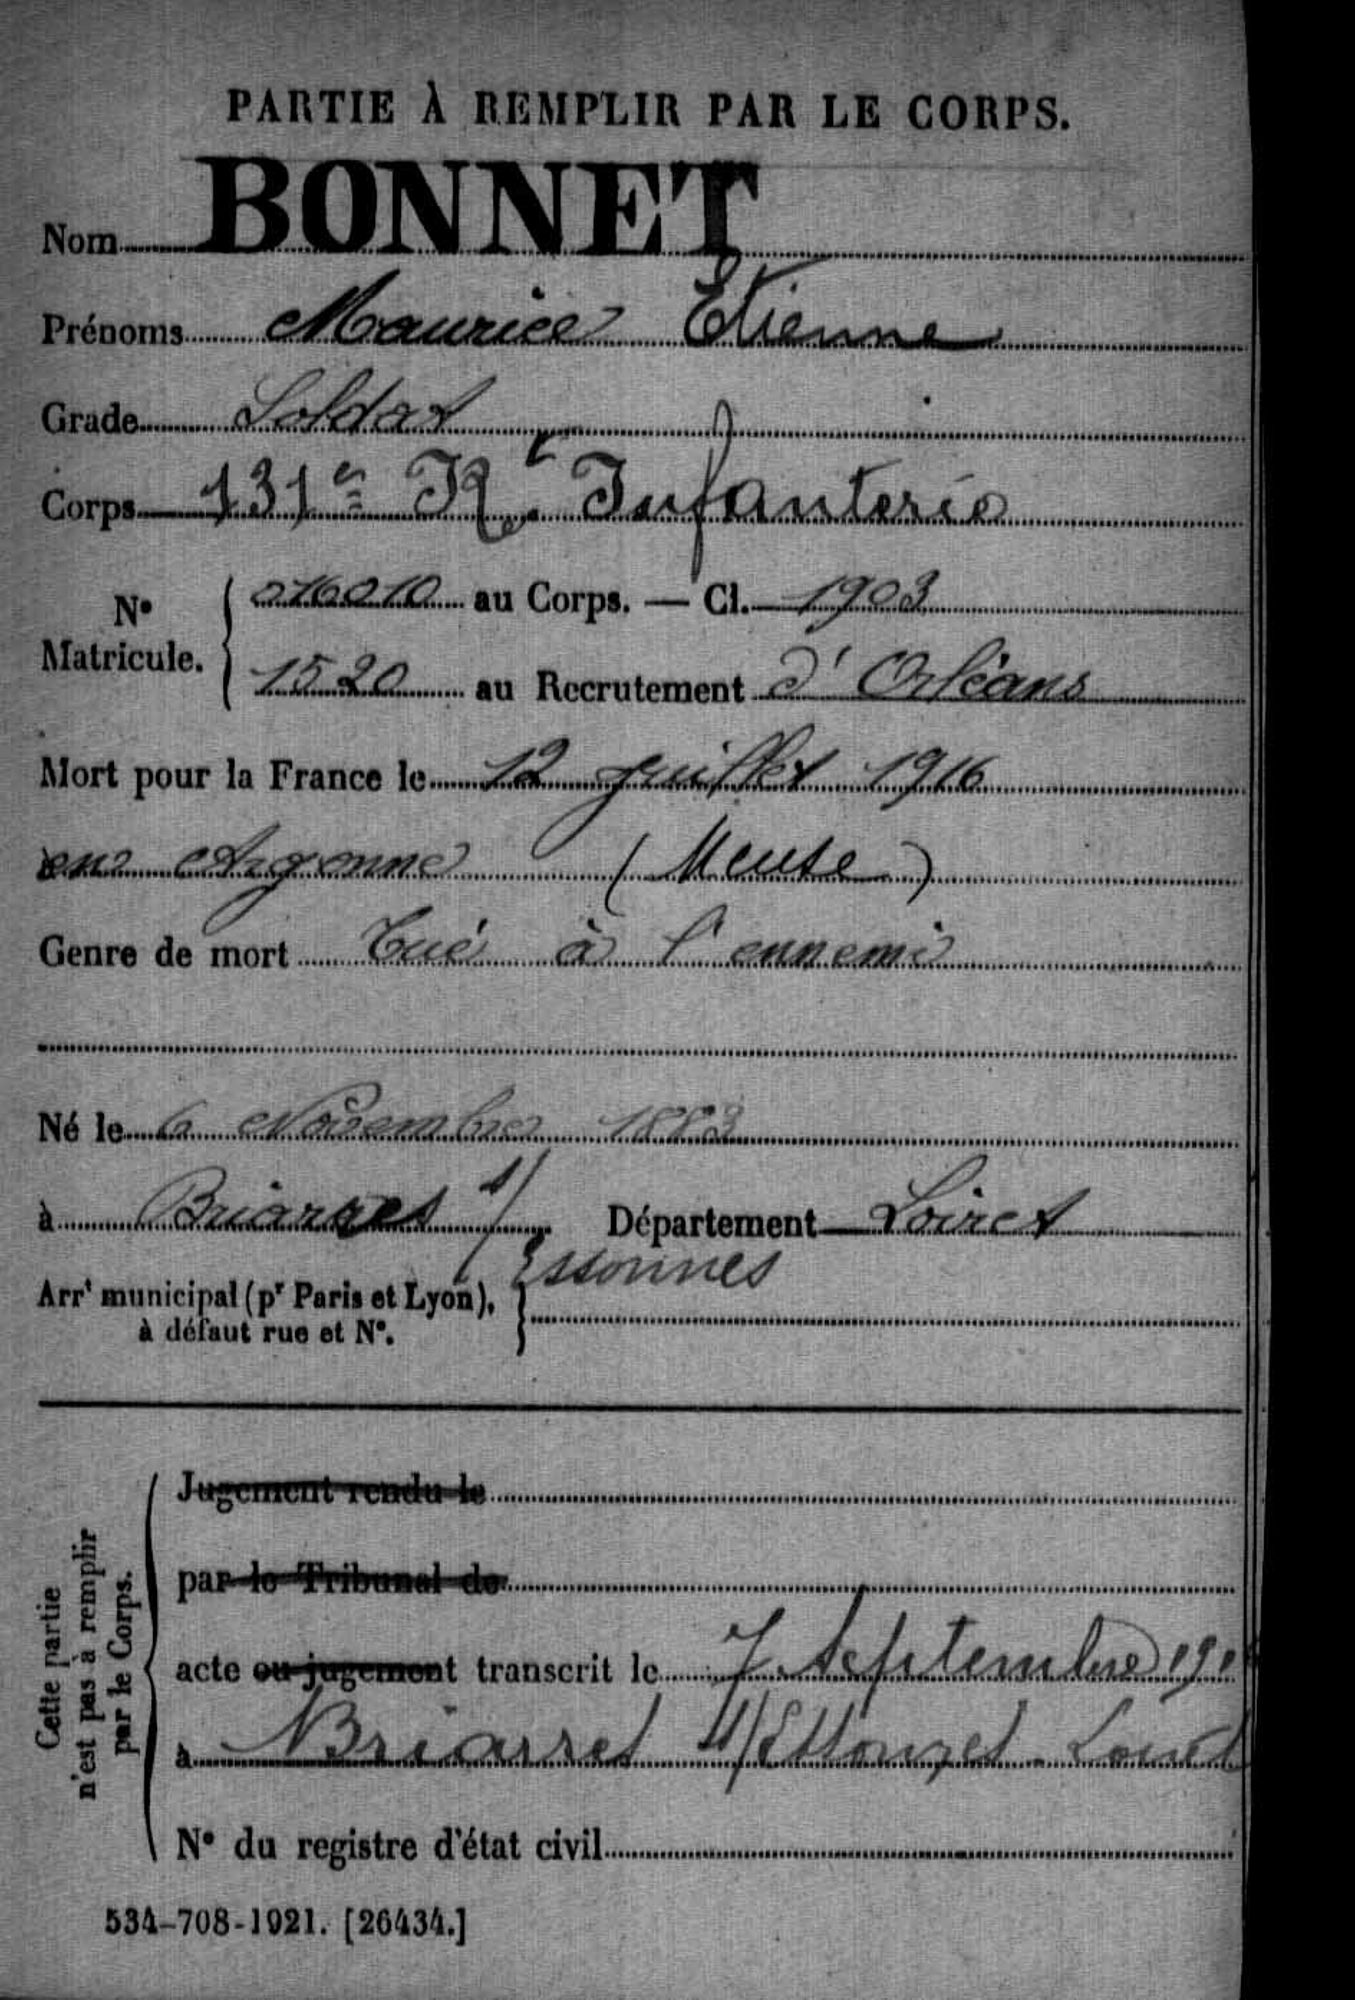 PARTIE À REMPLIR PAR LE CORPS.
Nom BONNET
Prénoms Maurice Etienne
Grade Soldat
Corps 131e Rt Infanterie
N° Matricule. { 016010 au Corps. — Cl. 1903
1520 au Recrutement d'Orléans
Mort pour la France le 12 juillet 1916
en Argonne (Meuse)
Genre de mort Tué à l'ennemi
Né le 6 Novembre 1883
à Briarres s/ Département Loiret
Essonnes
Arrt municipal (pr Paris et Lyon),
à défaut rue et N°.
Cette partie
n'est pas à remplir
par le Corps.
Jugement rendu le
par le Tribunal de
acte ou jugement transcrit le 7 Septembre
à Briarres s/Essonnes Loiret
N° du registre d'état civil
534-708-1921. [26434.]